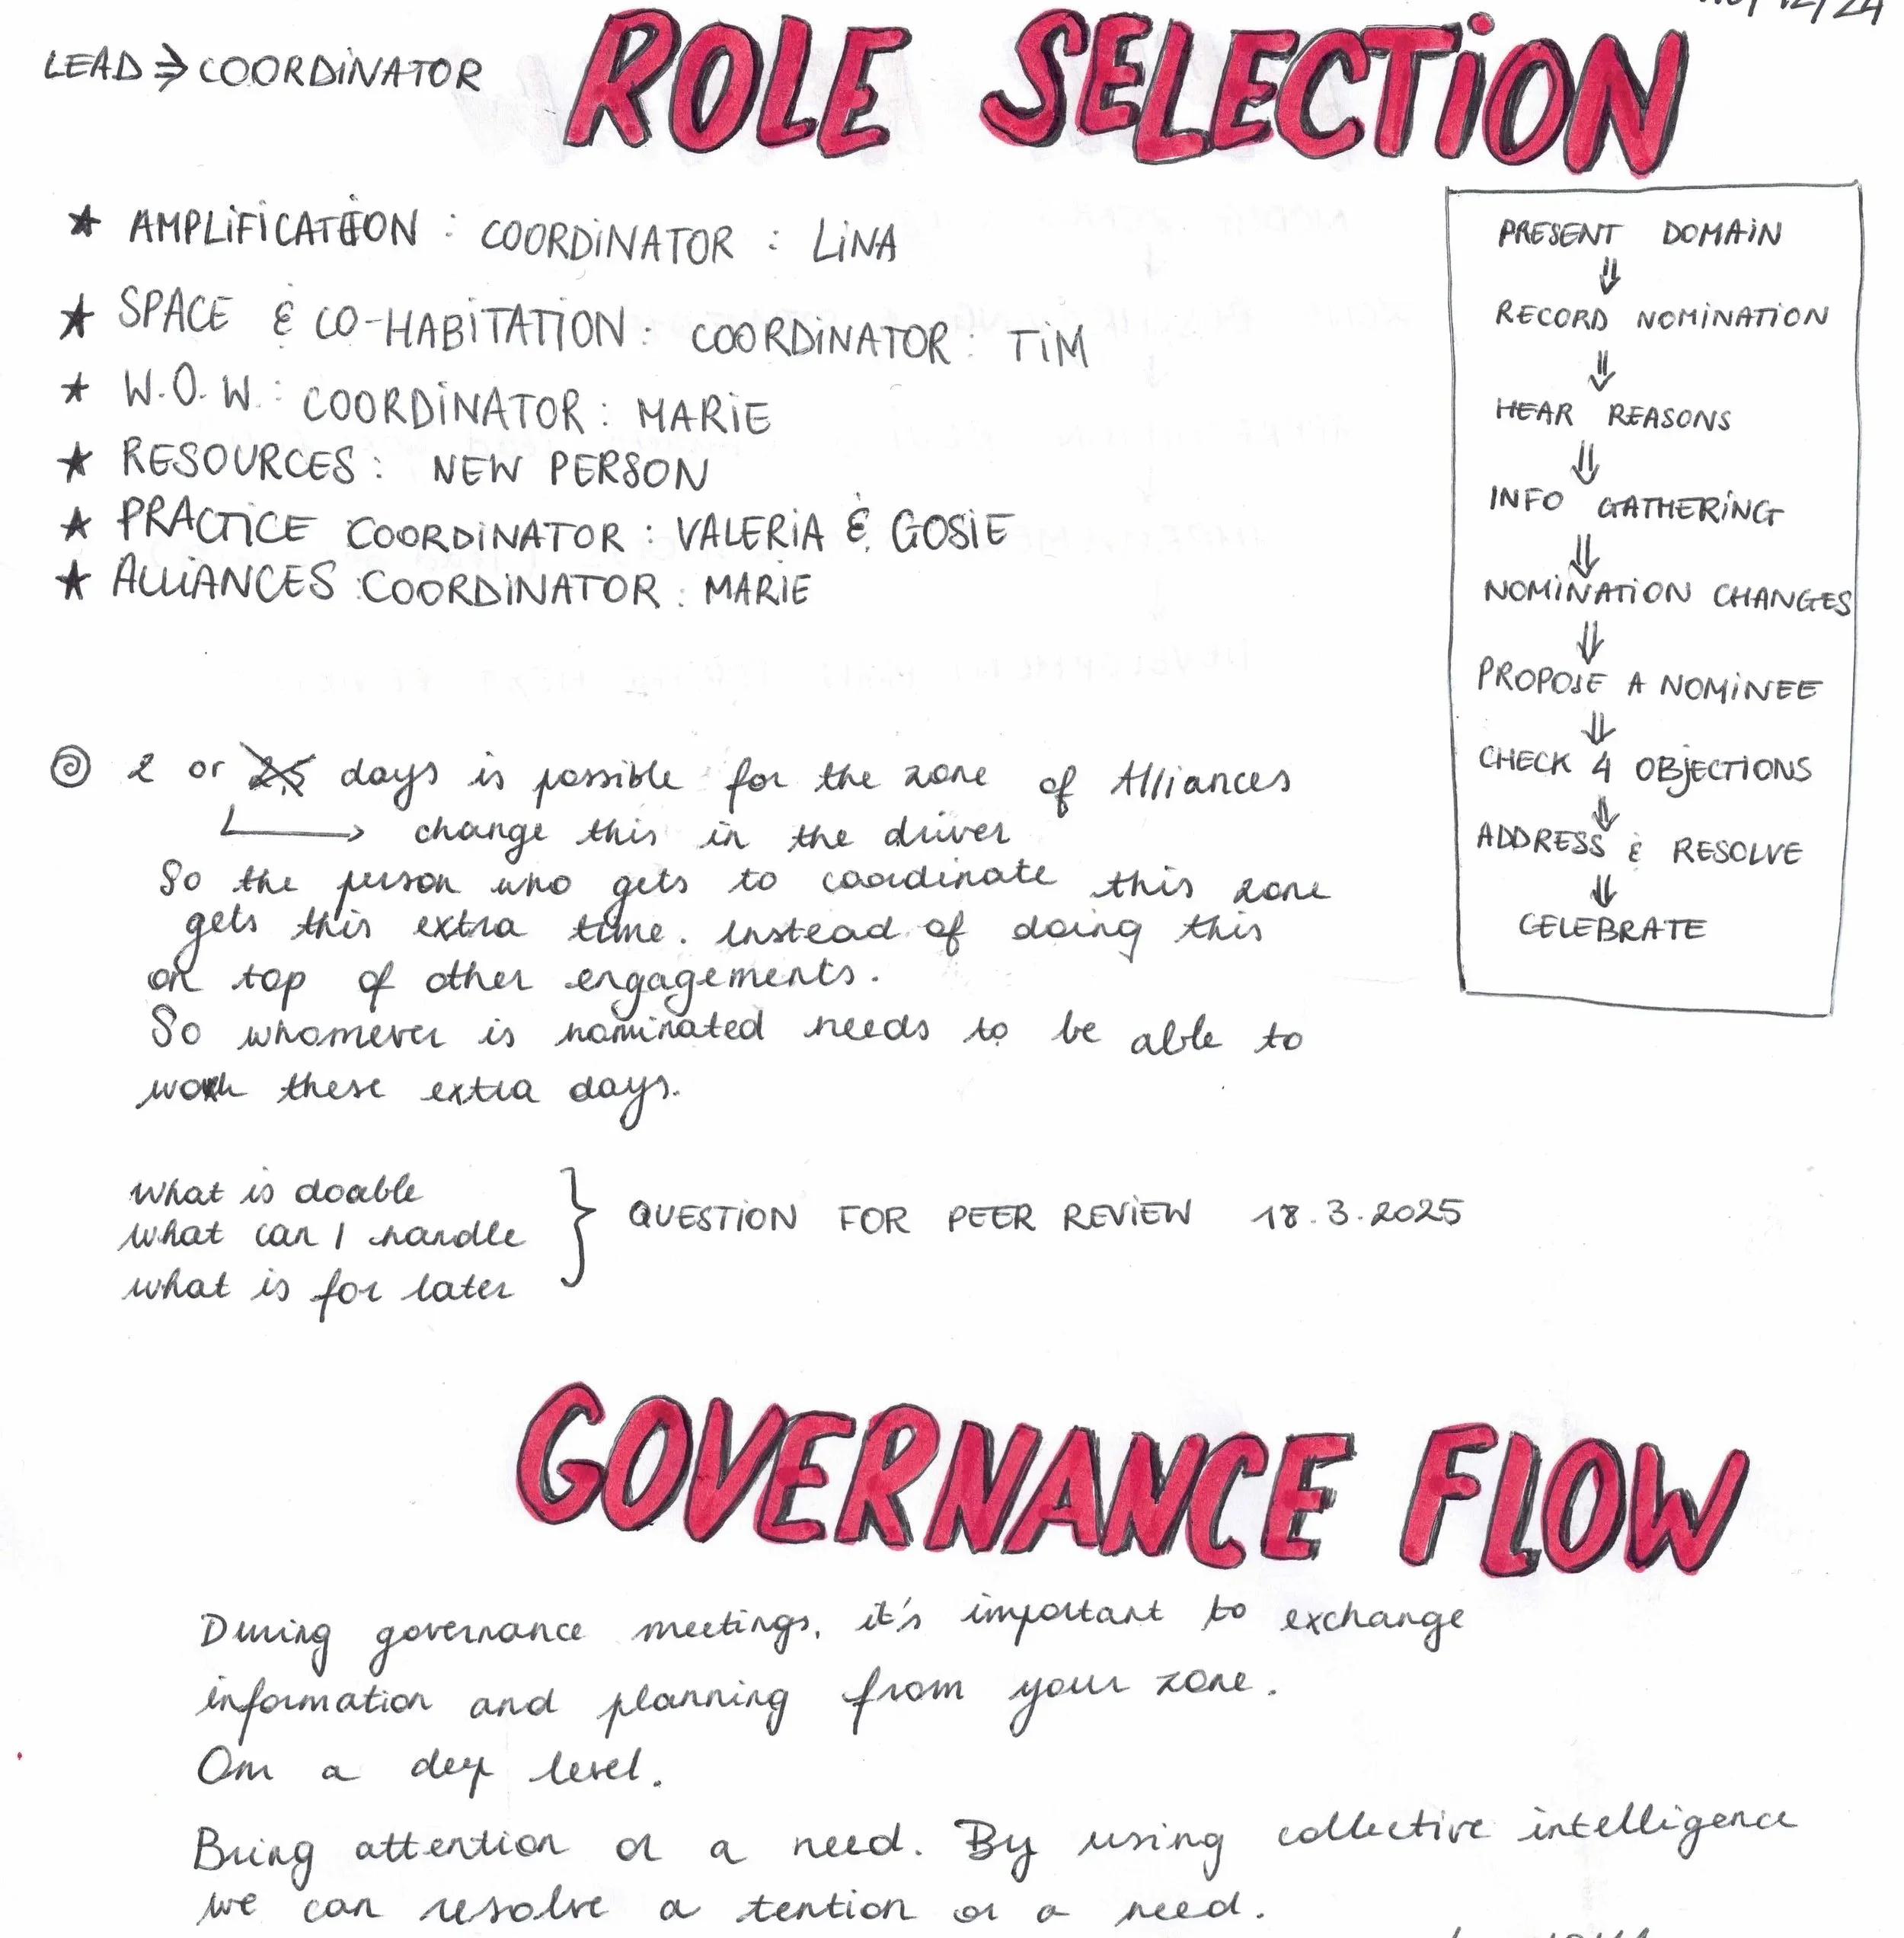 LEAD ⇒ COORDINATOR
ROLE SELECTION
★ AMPLIFICATION : COORDINATOR : LINA
★ SPACE & CO-HABITATION : COORDINATOR : TIM
★ W.O.W. : COORDINATOR : MARIE
★ RESOURCES : NEW PERSON
★ PRACTICE COORDINATOR : VALERIA & GOSIE
★ ALLIANCES COORDINATOR : MARIE
PRESENT DOMAIN
⇓
RECORD NOMINATION
⇓
HEAR REASONS
⇓
INFO GATHERING
⇓
NOMINATION CHANGES
⇓
PROPOSE A NOMINEE
⇓
CHECK 4 OBJECTIONS
⇓
ADDRESS & RESOLVE
⇓
CELEBRATE
2 or 2,5 days is possible for the zone of Alliances
→ change this in the driver
So the person who gets to coordinate this zone
gets this extra time. instead of doing this
on top of other engagements.
So whomever is nominated needs to be able to
work these extra days.
what is doable
what can I handle
what is for later
} QUESTION FOR PEER REVIEW 18.3.2025
GOVERNANCE FLOW
During governance meetings, it's important to exchange
information and planning from your zone.
Om a deep level.
Bring attention or a need. By using collective intelligence
we can resolve a tention or a need.